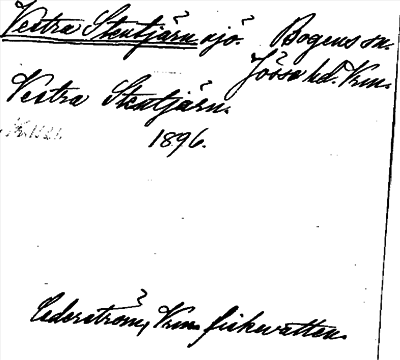 Vestra Stentjärn sjö. Bogens sn.
Jössa hd. Vrm.
Vestra Stentjärn.
1896.
Cederström, Vrm. fiskevatten.